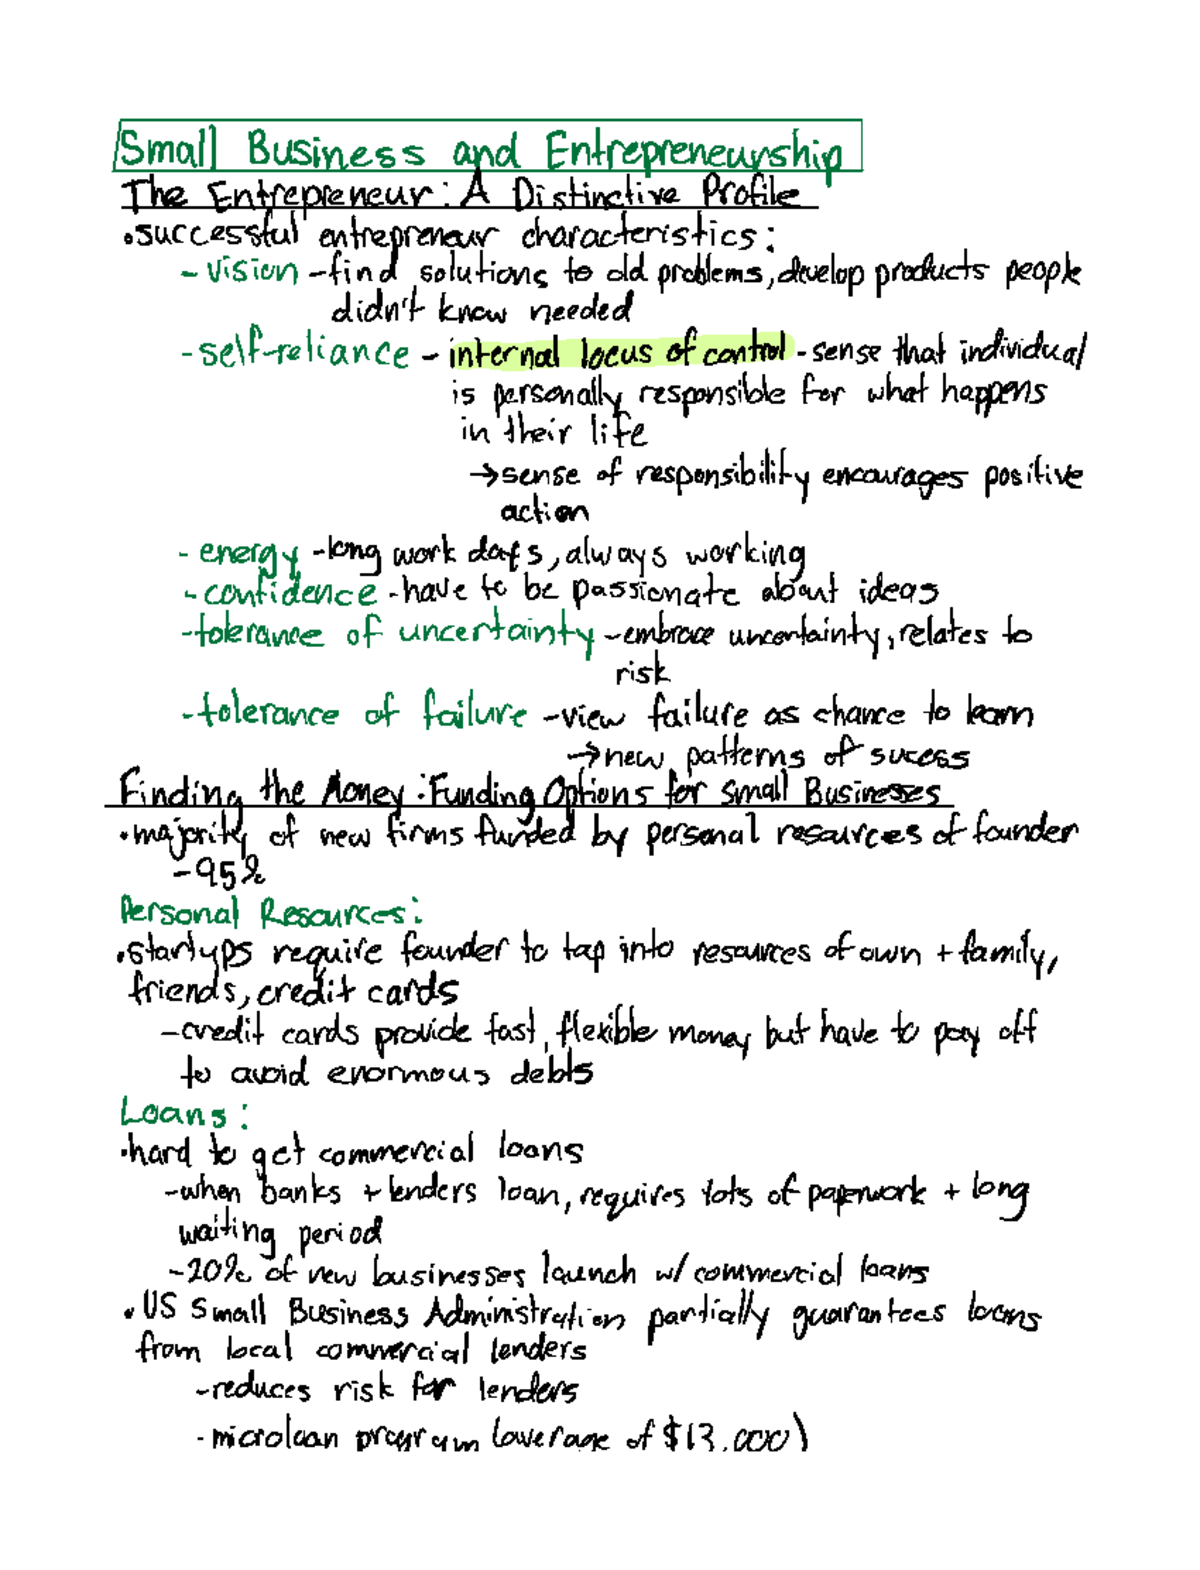 Small Business and Entrepreneurship
The Entrepreneur: A Distinctive Profile
•successful entrepreneur characteristics:
- vision - find solutions to old problems, develop products people
didn't know needed
- self-reliance - internal locus of control - sense that individual
is personally responsible for what happens
in their life
→sense of responsibility encourages positive
action
- energy - long work days, always working
- confidence - have to be passionate about ideas
- tolerance of uncertainty - embrace uncertainty, relates to
risk
- tolerance of failure - view failure as chance to learn
→new patterns of sucess
Finding the Money: Funding Options for Small Businesses
•majority of new firms funded by personal resources of founder
-95%
Personal Resources:
•startups require founder to tap into resources of own + family,
friends, credit cards
-credit cards provide fast, flexible money but have to pay off
to avoid enormous debts
Loans:
•hard to get commercial loans
-when banks + lenders loan, requires lots of paperwork + long
waiting period
-20% of new businesses launch w/ commercial loans
•US Small Business Administration partially guarantees loans
from local commercial lenders
-reduces risk for lenders
- microloan program (average of $13,000)